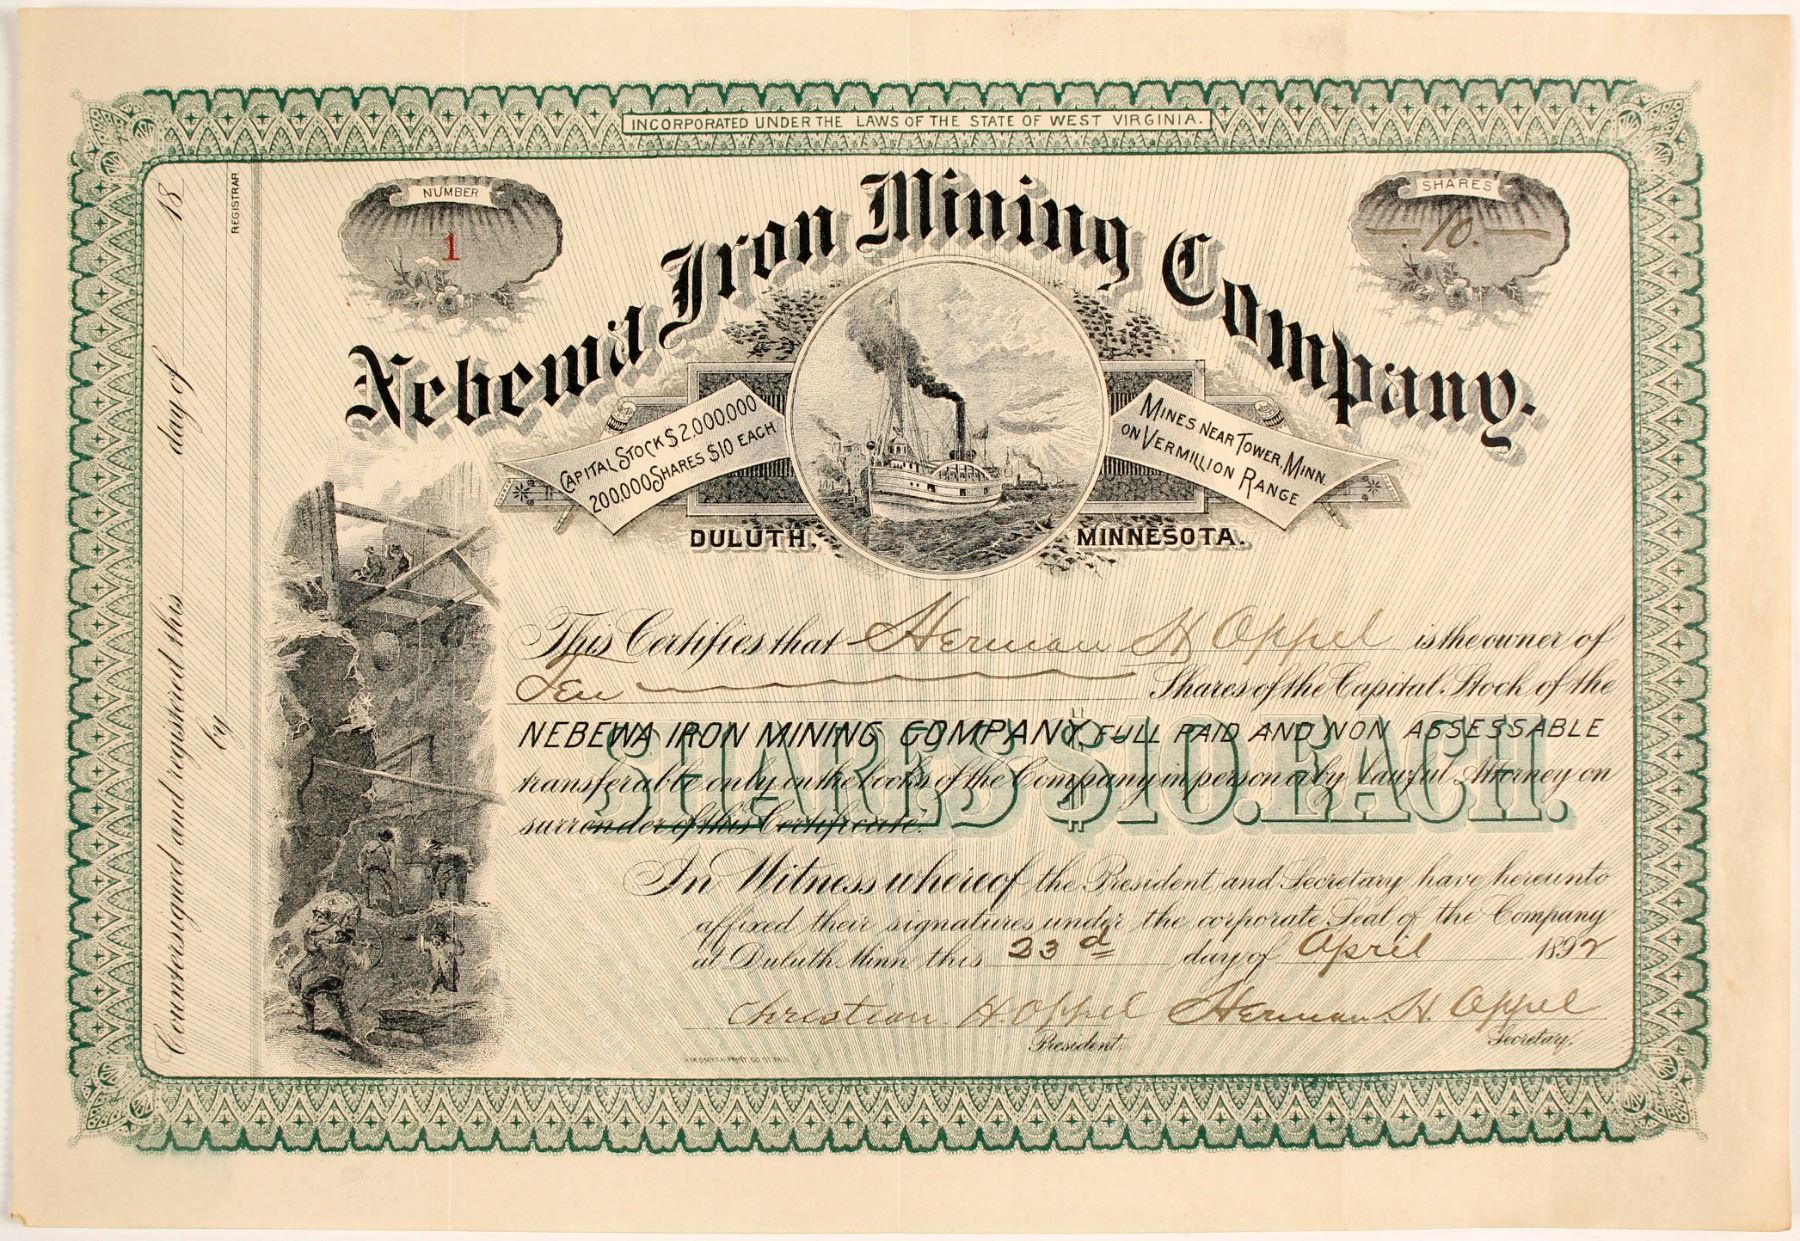 INCORPORATED UNDER THE LAWS OF THE STATE OF WEST VIRGINIA.
NUMBER
1
SHARES
10.
Nebewa Iron Mining Company.
CAPITAL STOCK $2.000.000
200.000 SHARES $10 EACH
MINES NEAR TOWER, MINN.
ON VERMILLION RANGE
DULUTH, MINNESOTA.
This Certifies that Herman H Oppel is the owner of
Ten Shares of the Capital Stock of the
NEBEWA IRON MINING COMPANY FULL PAID AND NON ASSESSABLE
transferable only on the books of the Company in person or by lawful Attorney on
surrender of this Certificate.
SHARES $10. EACH.
In Witness whereof the President and Secretary have hereunto
affixed their signatures under the corporate Seal of the Company
at Duluth Minn this 23d day of April 1892
Christian H. Oppel Herman H. Oppel
President. Secretary.
Countersigned and registered this day of 18
by REGISTRAR